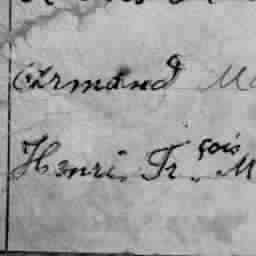 Armand M
Henri Fr.çois M